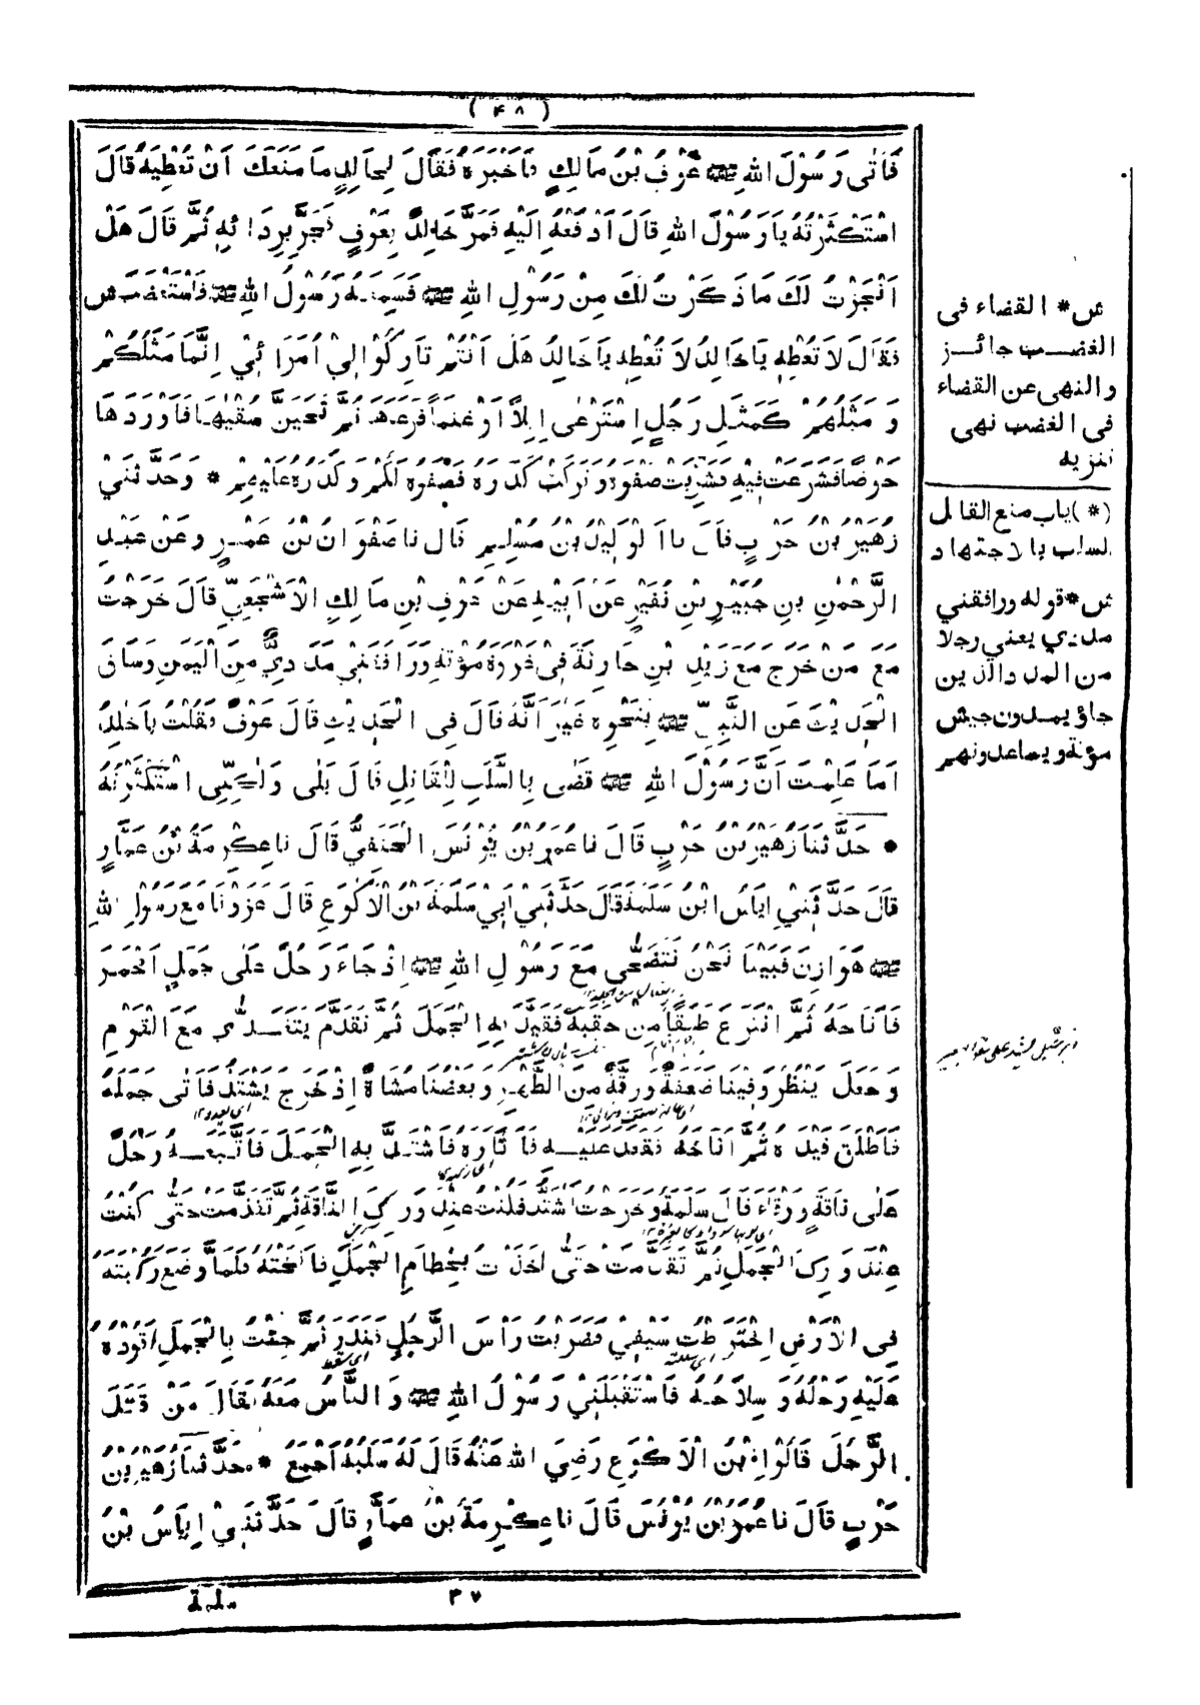 ( ۴۸ )
فَاَتٰى رَسُوْلَ اللهِ ﷺ عَوْفُ بْنُ مَالِكٍ فَاَخْبَرَهُ فَقَالَ لِخَالِدٍ مَا مَنَعَكَ اَنْ تُعْطِيَهُ قَالَ
اسْتَكْثَرْتُهُ يَا رَسُوْلَ اللهِ قَالَ اُدْفَعْهُ اِلَيْهِ فَمَرَّ خَالِدٌ بِعَوْفٍ فَجَرَّ بِرِدَائِهِ ثُمَّ قَالَ هَلْ
اَنْجَزْتُ لَكَ مَا ذَكَرْتُ لَكَ مِنْ رَسُوْلِ اللهِ ﷺ فَسَمِعَهُ رَسُوْلُ اللهِ ﷺ فَاسْتُغْضِبَ ش
فَقَالَ لَا تُعْطِهِ يَا خَالِدُ لَا تُعْطِهِ يَا خَالِدُ هَلْ اَنْتُمْ تَارِكُوْا لِيْ اُمَرَائِيْ اِنَّمَا مَثَلُكُمْ
وَمَثَلُهُمْ كَمَثَلِ رَجُلٍ اِسْتَرْعٰى اِبِلًا اَوْ غَنَمًا فَرَعَاهَا ثُمَّ تَحَيَّنَ سَقْيَهَا فَاَوْرَدَهَا
حَوْضًا فَشَرَعَتْ فِيْهِ فَشَرِبَتْ صَفْوَهُ وَتَرَكَتْ كَدَرَهُ فَصَفْوُهُ لَكُمْ وَكَدَرُهُ عَلَيْهِمْ * وَحَدَّثَنِيْ
زُهَيْرُ بْنُ حَرْبٍ قَالَ نا الْوَلِيْدُ بْنُ مُسْلِمٍ قَالَ نا صَفْوَانُ بْنُ عَمْرٍو عَنْ عَبْدِ
الرَّحْمٰنِ بْنِ جُبَيْرِ بْنِ نُفَيْرٍ عَنْ اَبِيْهِ عَنْ عَوْفِ بْنِ مَالِكِ الْاَشْجَعِيِّ قَالَ خَرَجْتُ
مَعَ مَنْ خَرَجَ مَعَ زَيْدِ بْنِ حَارِثَةَ فِيْ غَزْوَةِ مُؤْتَةَ وَرَافَقَنِيْ مَدَدِيٌّ مِنَ الْيَمَنِ وَسَاقَ
الْحَدِيْثَ عَنِ النَّبِيِّ ﷺ بِنَحْوِهِ غَيْرَ اَنَّهُ قَالَ فِي الْحَدِيْثِ قَالَ عَوْفٌ فَقُلْتُ يَا خَالِدُ
اَمَا عَلِمْتَ اَنَّ رَسُوْلَ اللهِ ﷺ قَضٰى بِالسَّلَبِ لِلْقَاتِلِ قَالَ بَلٰى وَلٰكِنِّى اسْتَكْثَرْتُهُ
* حَدَّثَنَا زُهَيْرُ بْنُ حَرْبٍ قَالَ نا عُمَرُ بْنُ يُوْنُسَ الْحَنَفِيُّ قَالَ نا عِكْرِمَةُ بْنُ عَمَّارٍ
قَالَ حَدَّثَنِيْ اِيَاسُ ابْنُ سَلَمَةَ قَالَ حَدَّثَنِيْ اَبِيْ سَلَمَةُ بْنُ الْاَكْوَعِ قَالَ غَزَوْنَا مَعَ رَسُوْلِ اللهِ
ﷺ هَوَازِنَ فَبَيْنَا نَحْنُ نَتَضَحّٰى مَعَ رَسُوْلِ اللهِ ﷺ اِذْ جَاءَ رَجُلٌ عَلٰى جَمَلٍ اَحْمَرَ
فَاَنَاخَهُ ثُمَّ انْتَزَعَ طَلَقًا مِنْ حَقَبِهِ فَقَيَّدَ بِهِ الْجَمَلَ ثُمَّ تَقَدَّمَ يَتَغَدّٰى مَعَ الْقَوْمِ
وَجَعَلَ يَنْظُرُ وَفِيْنَا ضَعْفَةٌ وَرِقَّةٌ مِنَ الظَّهْرِ وَبَعْضُنَا مُشَاةٌ اِذْ خَرَجَ يَشْتَدُّ فَاَتٰى جَمَلَهُ
فَاَطْلَقَ قَيْدَهُ ثُمَّ اَنَاخَهُ فَقَعَدَ عَلَيْهِ فَاَثَارَهُ فَاشْتَدَّ بِهِ الْجَمَلُ فَاتَّبَعَهُ رَجُلٌ
عَلٰى نَاقَةٍ وَرْقَاءَ قَالَ سَلَمَةُ وَخَرَجْتُ اَشْتَدُّ فَكُنْتُ عِنْدَ وَرِكِ النَّاقَةِ ثُمَّ تَقَدَّمْتُ حَتّٰى كُنْتُ
عِنْدَ وَرِكِ الْجَمَلِ ثُمَّ تَقَدَّمْتُ حَتّٰى اَخَذْتُ بِخِطَامِ الْجَمَلِ فَاَنَخْتُهُ فَلَمَّا وَضَعَ رُكْبَتَهُ
فِى الْاَرْضِ اِخْتَرَطْتُ سَيْفِيْ فَضَرَبْتُ رَأْسَ الرَّجُلِ فَنَدَرَ ثُمَّ جِئْتُ بِالْجَمَلِ اَقُوْدُهُ
عَلَيْهِ رَحْلُهُ وَسِلَاحُهُ فَاسْتَقْبَلَنِيْ رَسُوْلُ اللهِ ﷺ وَالنَّاسُ مَعَهُ فَقَالَ مَنْ قَتَلَ
الرَّجُلَ قَالُوْا ابْنُ الْاَكْوَعِ رَضِيَ اللهُ عَنْهُ قَالَ لَهُ سَلَبُهُ اَجْمَعُ * حَدَّثَنَا زُهَيْرُ بْنُ
حَرْبٍ قَالَ نا عُمَرُ بْنُ يُوْنُسَ قَالَ نا عِكْرِمَةُ بْنُ عَمَّارٍ قَالَ حَدَّثَنِيْ اِيَاسُ بْنُ
سلمة
۳۷
ش* القضاء فى
الغضب جائز
والنهى عن القضاء
فى الغضب نهى
تنزيه
(*) باب منع القاتل
السلب بالاجتهاد
ش* قوله ورافقني
مددي يعني رجلا
من المدد الذين
جاؤ يمدون جيش
مؤتة ويساعدونهم